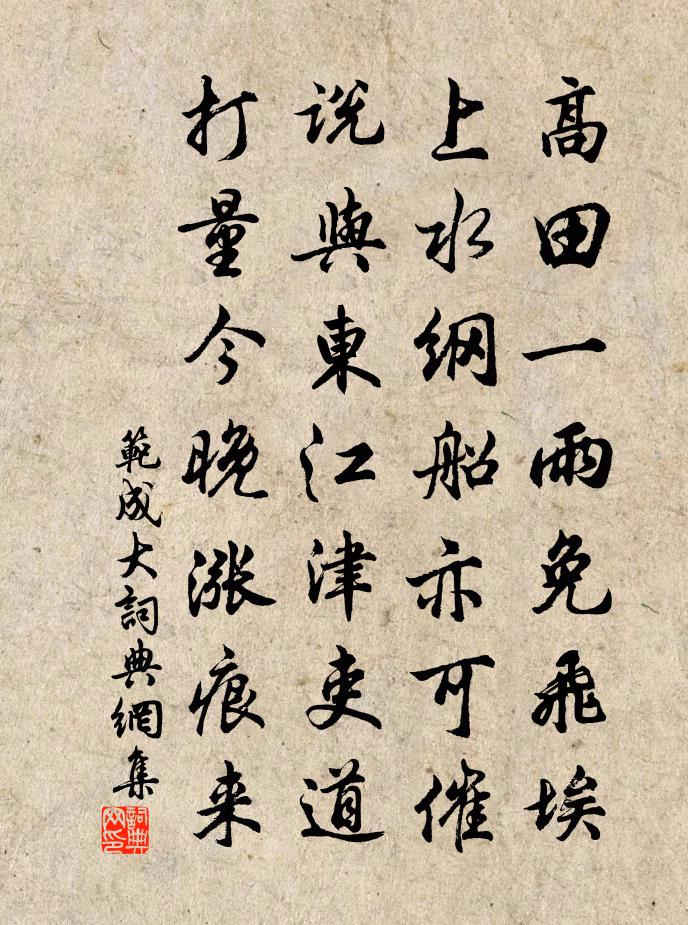 高田一雨免飛埃
上水綱船亦可催
説與東江津吏道
打量今晚漲痕来
範成大詞典網集
詞典网印